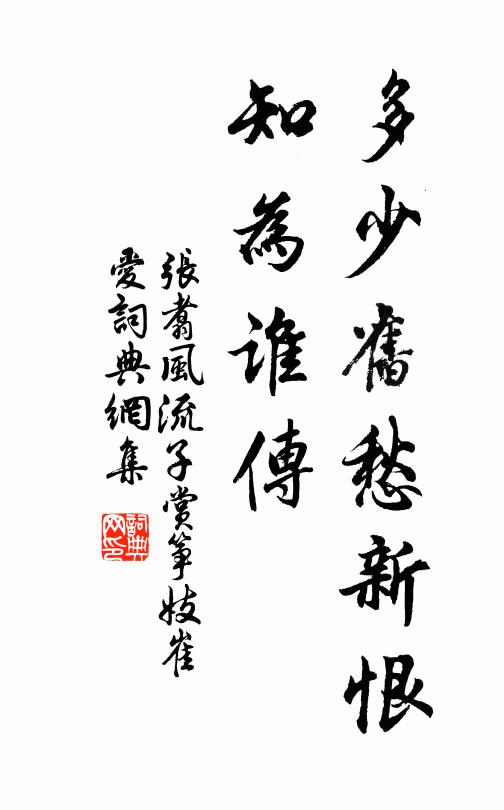 多少舊愁新恨
知為誰傳
張翥風流子賞箏妓崔
愛詞典網集
詞典网印